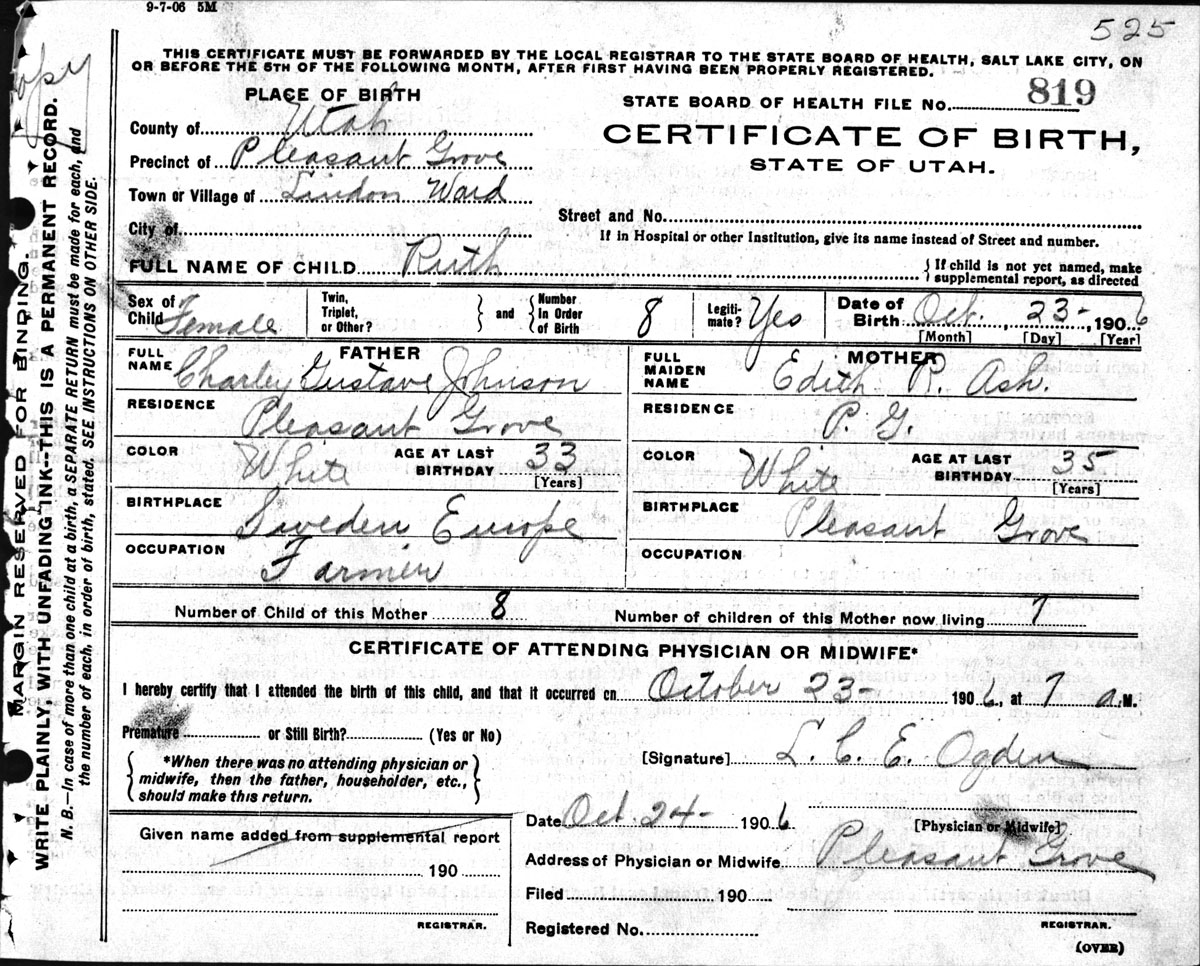 9-7-06 5M
525
THIS CERTIFICATE MUST BE FORWARDED BY THE LOCAL REGISTRAR TO THE STATE BOARD OF HEALTH, SALT LAKE CITY, ON
OR BEFORE THE 5TH OF THE FOLLOWING MONTH, AFTER FIRST HAVING BEEN PROPERLY REGISTERED.
PLACE OF BIRTH
STATE BOARD OF HEALTH FILE No. 819
County of Utah
CERTIFICATE OF BIRTH,
STATE OF UTAH.
Precinct of Pleasant Grove
Town or Village of Lindon Ward
Street and No.
City of
If in Hospital or other Institution, give its name instead of Street and number.
FULL NAME OF CHILD Ruth
If child is not yet named, make
supplemental report, as directed
Sex of Child Female
Twin, Triplet, or Other?
and
Number In Order of Birth 8
Legiti-mate? Yes
Date of Birth Oct. 23-, 1906
[Month] [Day] [Year]
FATHER
FULL NAME Charley Gustave Johnson
RESIDENCE Pleasant Grove
COLOR White
AGE AT LAST BIRTHDAY 33
[Years]
BIRTHPLACE Sweden Europe
OCCUPATION Farmer
MOTHER
FULL MAIDEN NAME Edith R. Ash.
RESIDENCE P. G.
COLOR White
AGE AT LAST BIRTHDAY 35
[Years]
BIRTHPLACE Pleasant Grove
OCCUPATION
Number of Child of this Mother 8
Number of children of this Mother now living 7
CERTIFICATE OF ATTENDING PHYSICIAN OR MIDWIFE*
I hereby certify that I attended the birth of this child, and that it occurred on October 23- 1906, at 7 a.M.
Premature or Still Birth? (Yes or No)
*When there was no attending physician or
midwife, then the father, householder, etc.,
should make this return.
[Signature] L. C. E. Ogden
Date Oct. 24- 1906
[Physician or Midwife]
Given name added from supplemental report
190
REGISTRAR.
Address of Physician or Midwife Pleasant Grove
Filed 190
Registered No.
REGISTRAR.
(OVER)
Copy
MARGIN RESERVED FOR BINDING.
WRITE PLAINLY, WITH UNFADING INK--THIS IS A PERMANENT RECORD.
N. B.—In case of more than one child at a birth, a SEPARATE RETURN must be made for each, and
the number of each, in order of birth, stated. SEE INSTRUCTIONS ON OTHER SIDE.